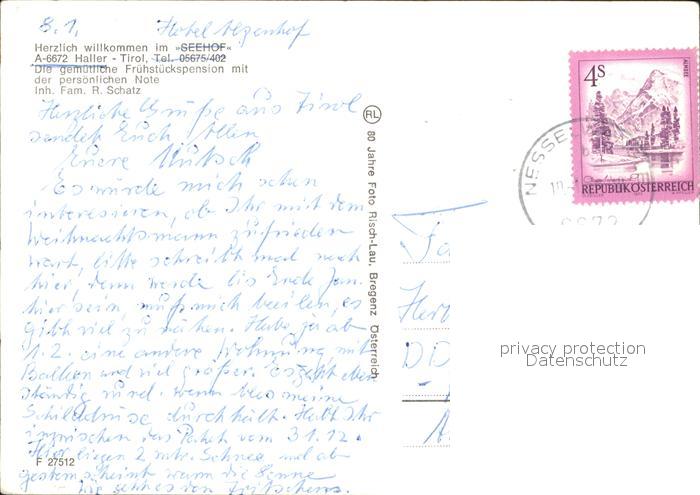 8.1. Hotel
Herzlich willkommen im »SEEHOF«
A-6672 Haller - Tirol, Tel. 05675/402
Die gemütliche Frühstückspension mit
der persönlichen Note
Inh. Fam. R. Schatz
Herzliche Grüße aus Tirol
sendet Euch Allen
Euere Mutsch
Es würde mich sehr
interessieren, ob Ihr mit dem
Weihnachtsmann zufrieden
wart, bitte schreibt mal nach
hier, denn werde bis Ende Jan.
hier sein, muß mich beeilen, es
gibt viel zu nähen. Habe ja ab
1.2. eine andere Wohnung, mit
Balkon und viel größer. es geht
ständig rund. wenn bloß meine
Schilddrüse durchhält. Habt Ihr
inzwischen das Paket vom 31.12.
Hier liegen 2 mtr. Schnee und ab
gestern scheint wenn die Sonne
F 27512
RL
80 Jahre Foto Risch-Lau, Bregenz Österreich
4S
ALMSEE
REPUBLIK ÖSTERREICH
NESSE
6672
Fa
DD
privacy protection
Datenschutz